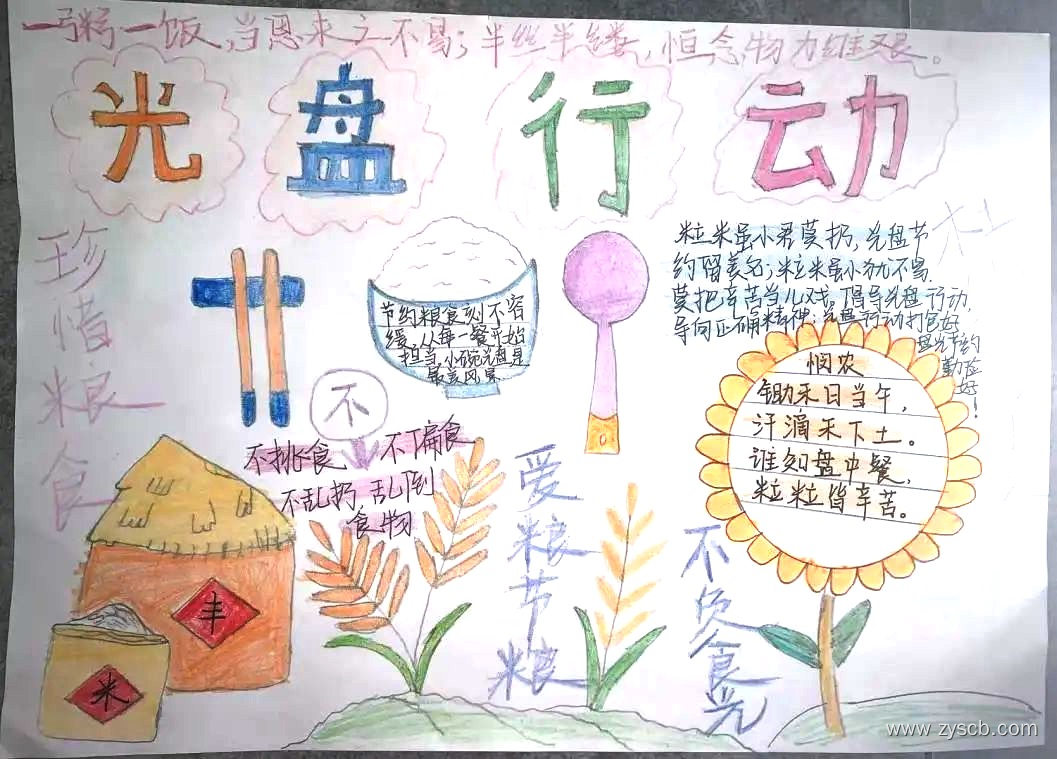 一粥一饭,当恩来之不易;半丝半缕,恒念物力维艰。
光 盘 行 动
珍惜粮食
节约粮食刻不容
缓,从每一餐开始
担当,小碗光盘是
最美风景
粒米虽小君莫扔,光盘节
约留美名;粒米虽小犹不易,
莫把辛苦当儿戏,倡导光盘行动,
导向正确精神;光盘行动打包好
盘光节约
勤俭
好!
不
不挑食 不偏食
不乱扔 乱倒
食物
悯农
锄禾日当午,
汗滴禾下土。
谁知盘中餐,
粒粒皆辛苦。
爱粮节粮
不负食光
丰
米
www.zyscb.com